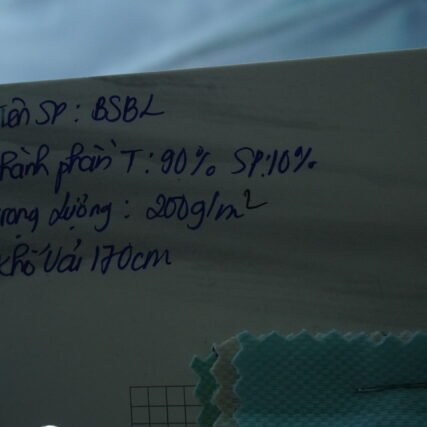 Tên SP: BSBL
Thành phần T: 90% SP:10%
Trọng lượng: 200g/m²
Khổ vải 170cm